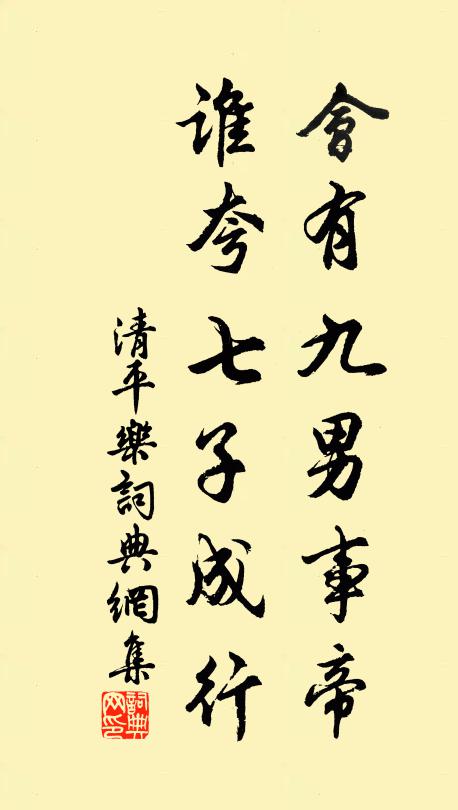 會有九男事帝
誰夸七子成行
清平樂詞典網集
詞典網印